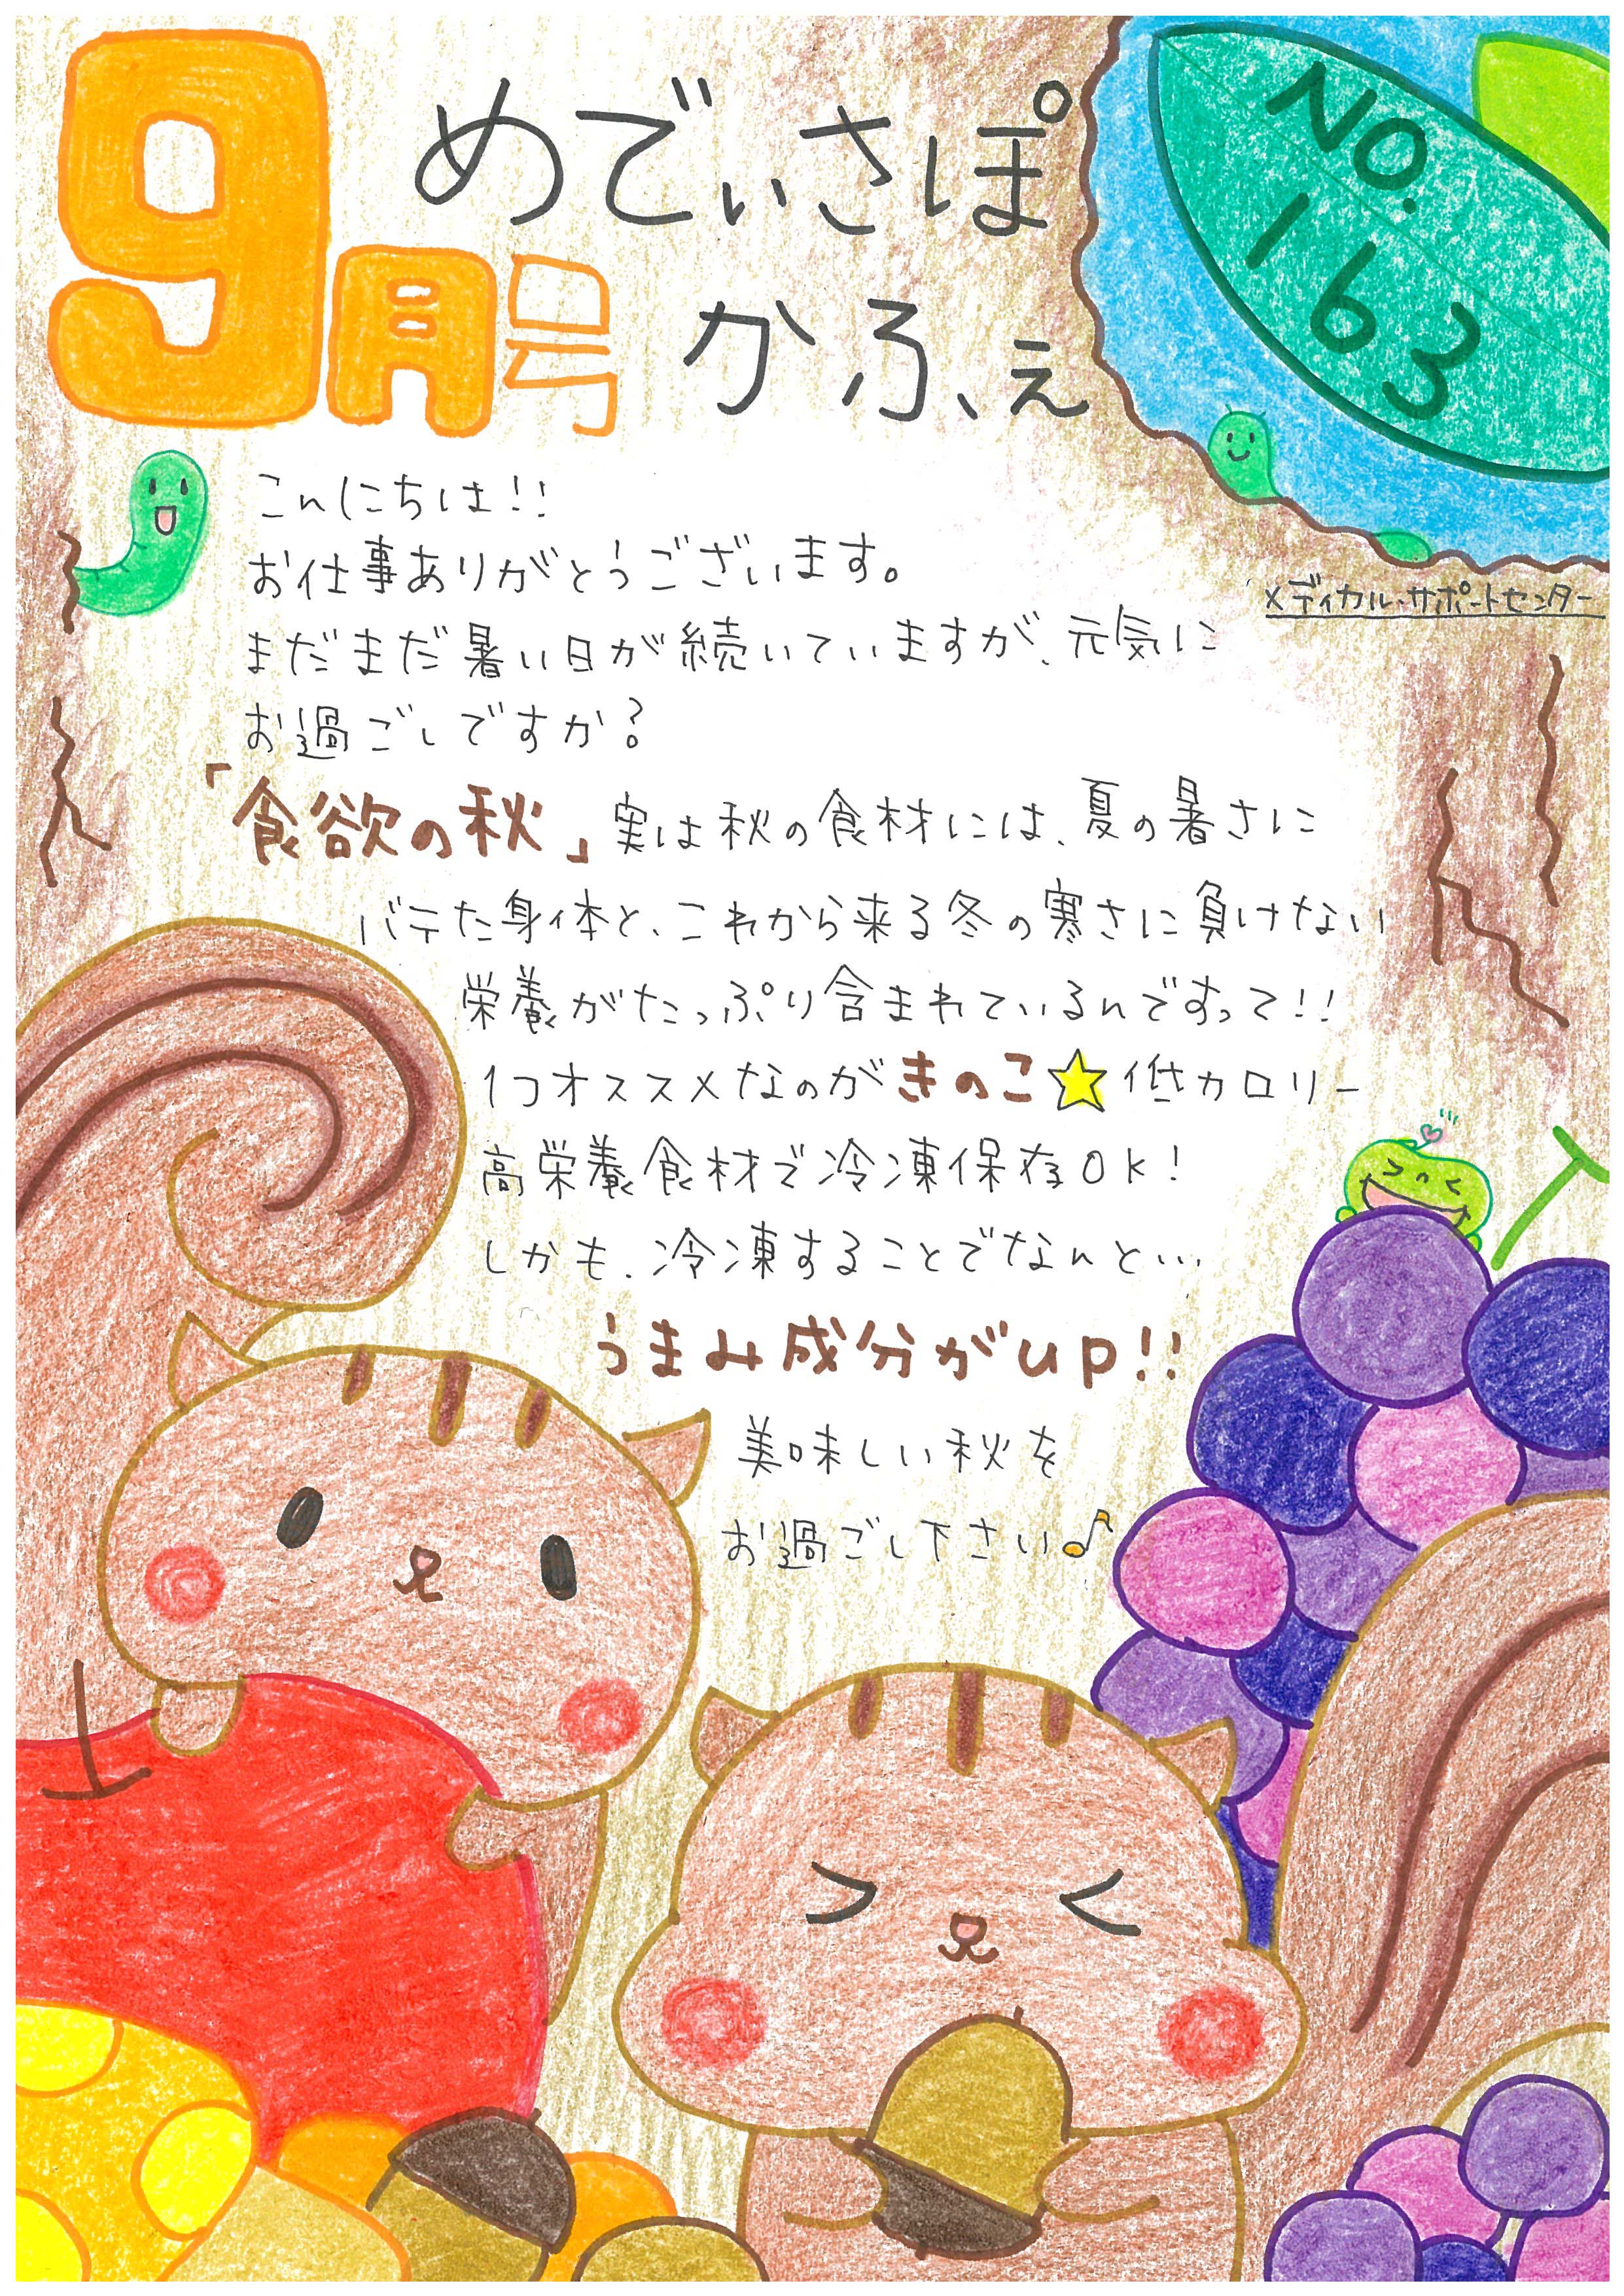 9月号
めでぃさぽ
かふぇ
NO.
163
メディカル・サポートセンター
こんにちは!!
お仕事ありがとうございます。
まだまだ暑い日が続いていますが、元気に
お過ごしですか?
「食欲の秋」実は秋の食材には、夏の暑さに
バテた身体と、これから来る冬の寒さに負けない
栄養がたっぷり含まれているんですって!!
1つオススメなのがきのこ☆低カロリー
高栄養食材で冷凍保存OK!
しかも、冷凍することでなんと…
うまみ成分がup!!
美味しい秋を
お過ごし下さい♪